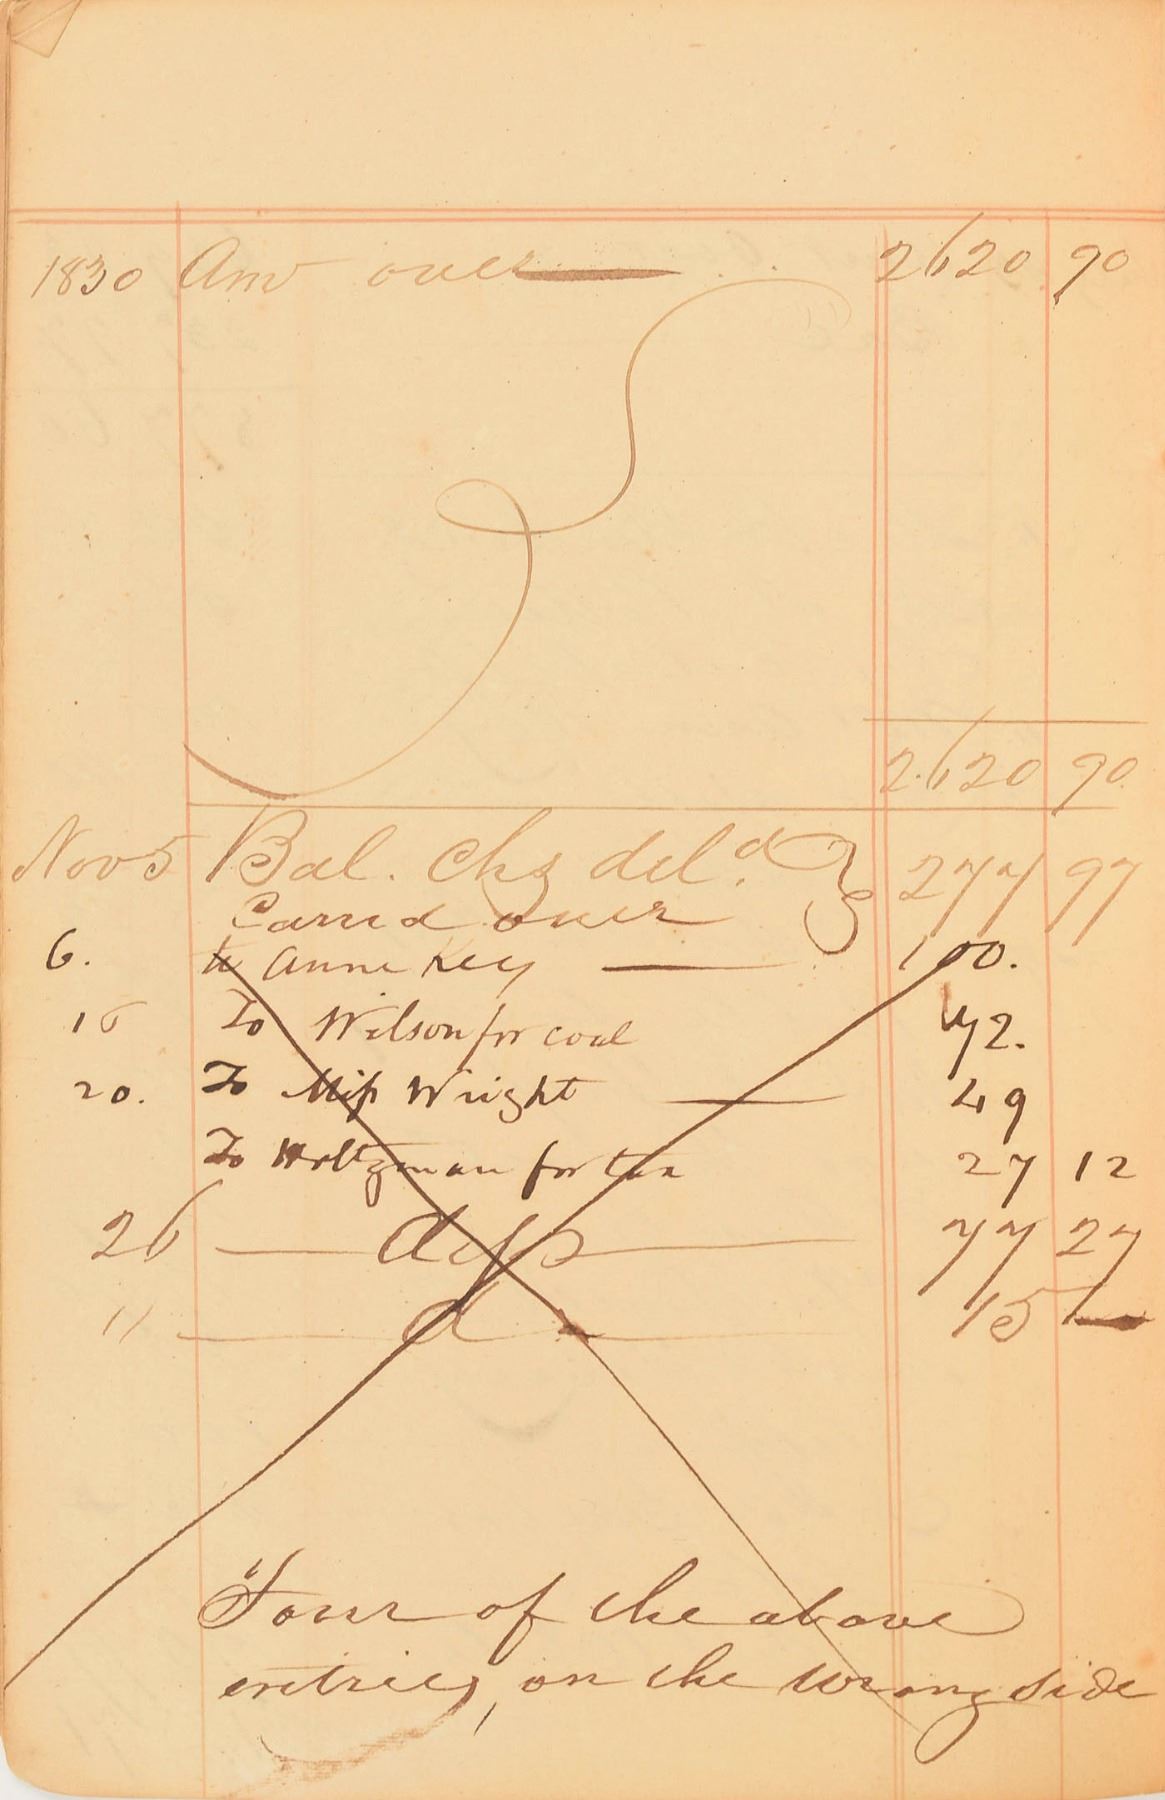 1830 Amt over 2620 90
2620 90
Nov 5 Bal. Chg deld. 277 97
Carried over
6. to Anne Key 100.
16 To Wilson for coal 72.
20. To Miss Wright 49
To Holtzman for tax 27 12
26 deps 77 27
" do 15 —
"Four of the above
entries, on the wrong side